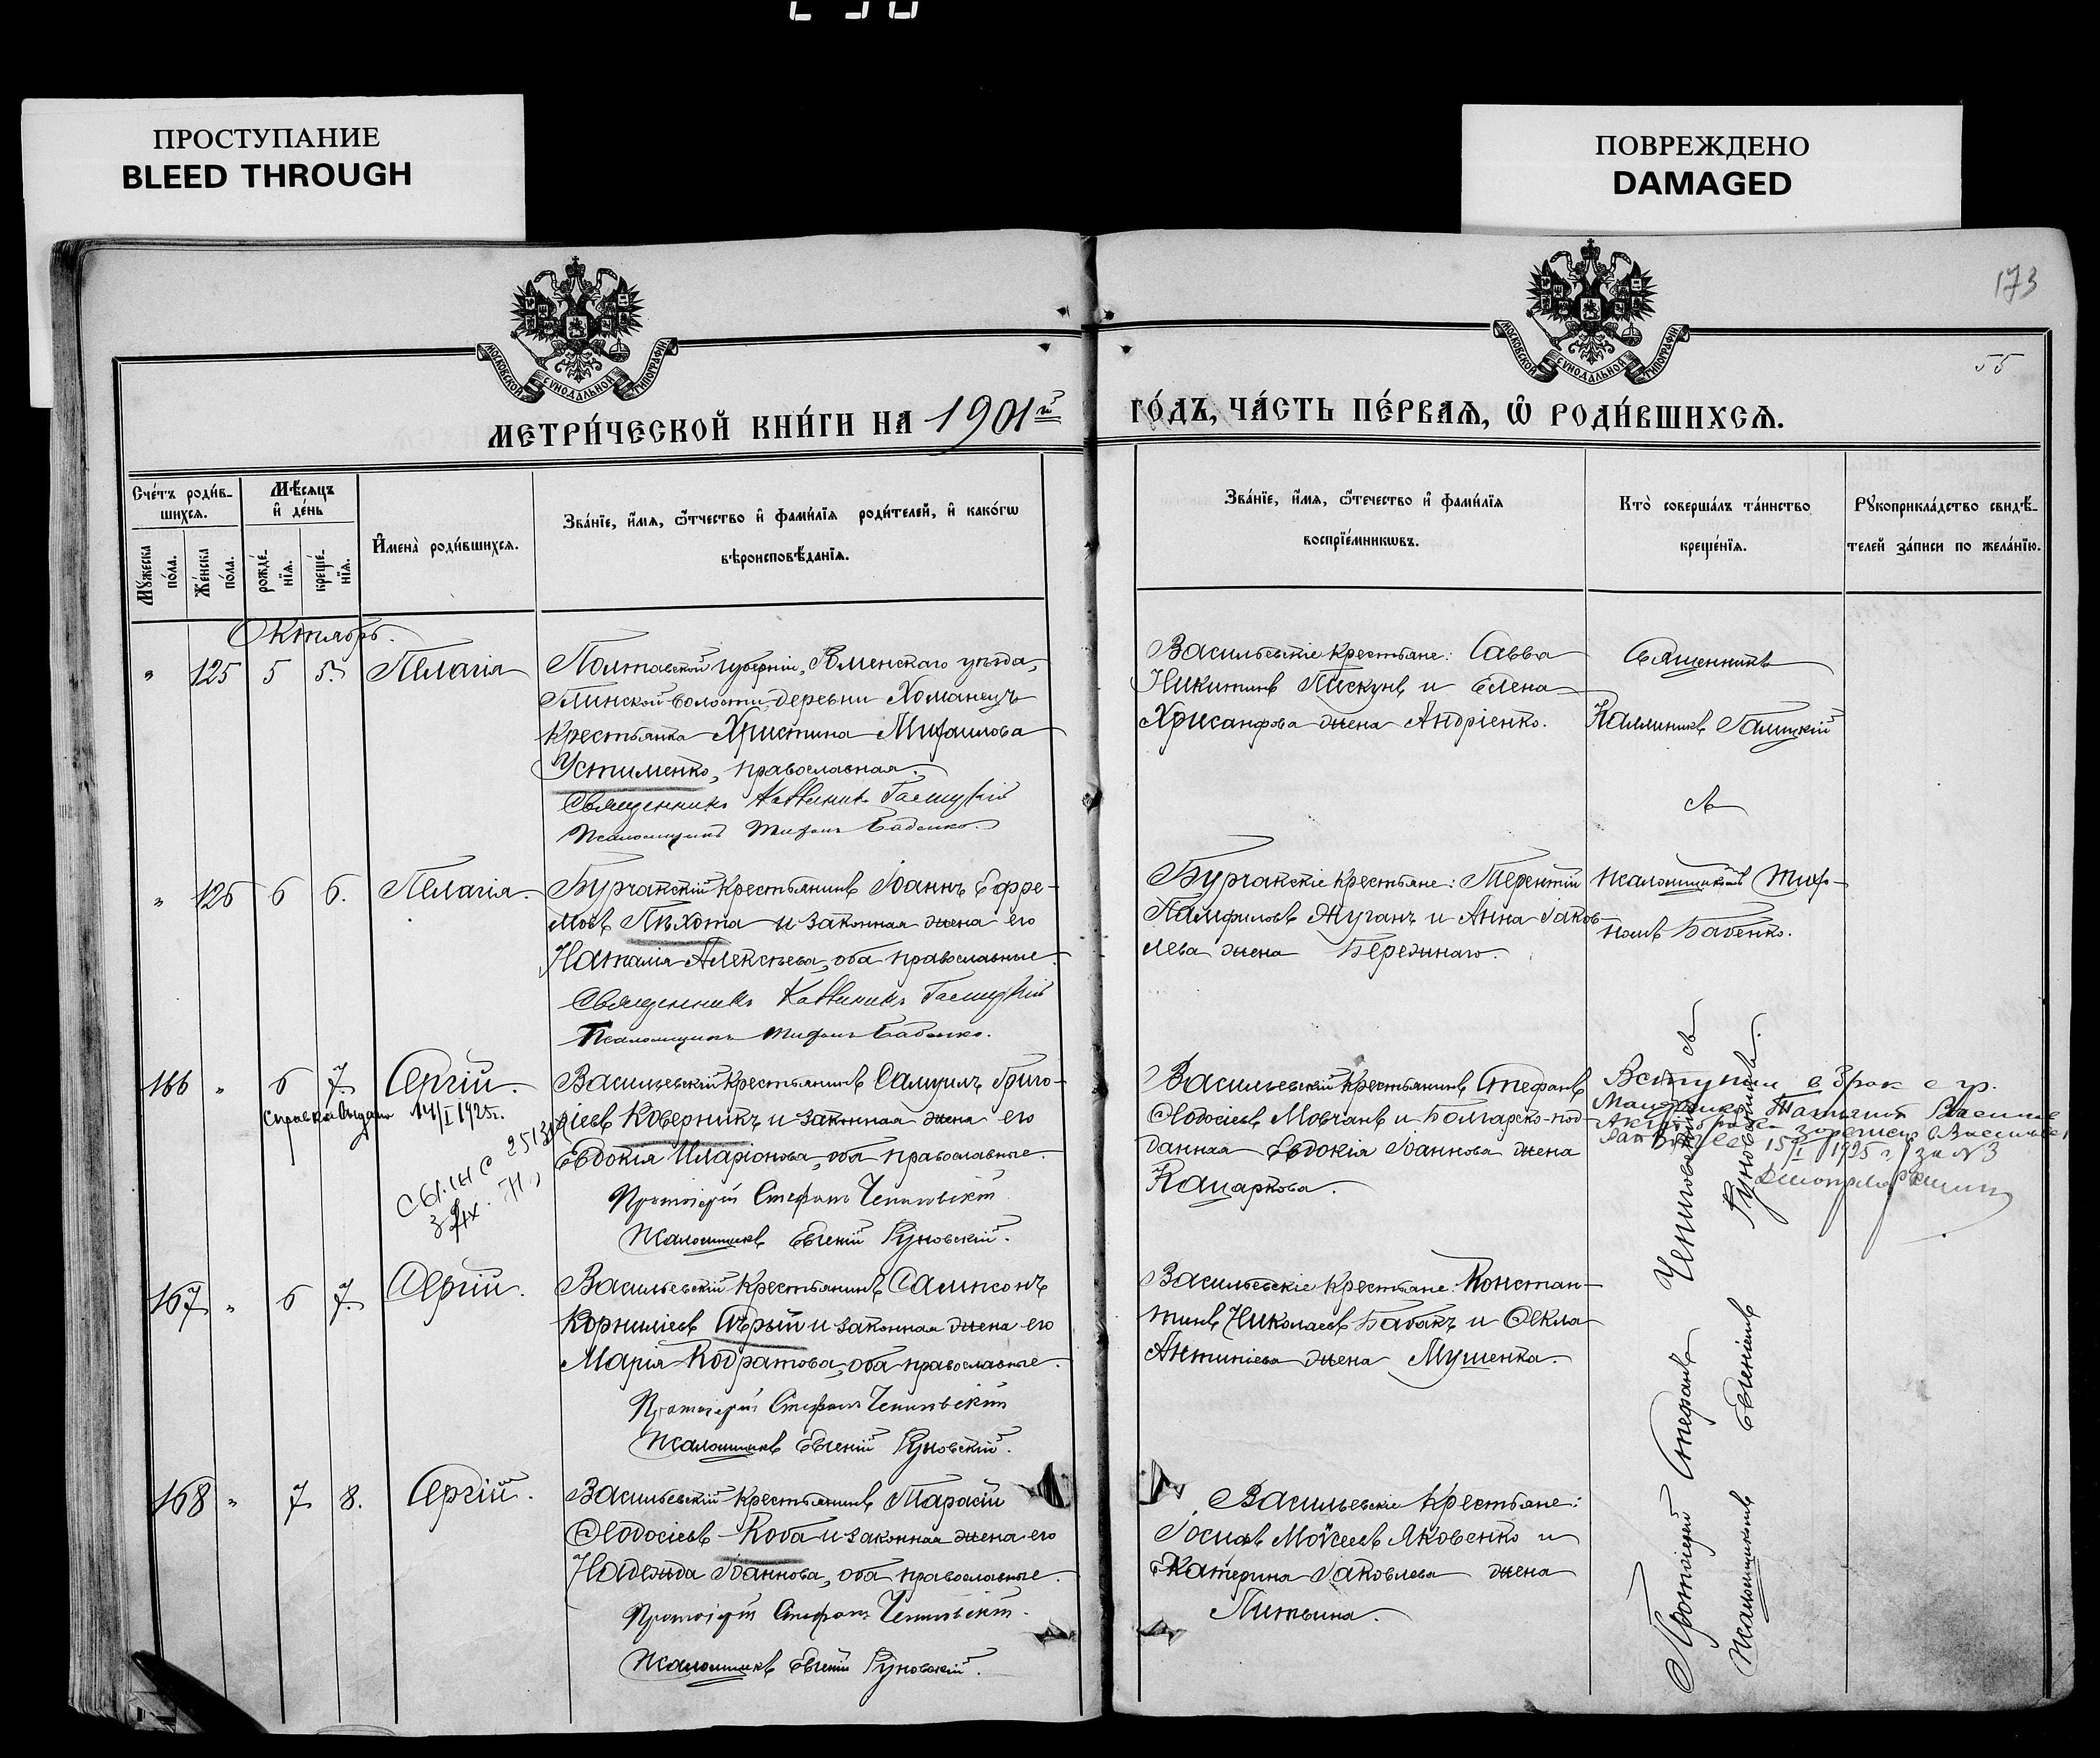 ПРОСТУПАНИЕ
BLEED THROUGH
ПОВРЕЖДЕНО
DAMAGED
173
55
МОСКОВСКОЙ СѴНОДАЛЬНОЙ ТИПОГРАФІИ
МОСКОВСКОЙ СѴНОДАЛЬНОЙ ТИПОГРАФІИ
МЕТРИ́ЧЕСКОЙ КНИ́ГИ НА 1901й ГО́ДЪ, ЧА́СТЬ ПЕ́РВАѦ, Ѡ РОДИ́ВШИХСѦ.
Сче́тъ роди́в-
шихся.
Мѣ́сяцъ
и де́нь
Мꙋ́жеска по́ла.
Же́нска по́ла.
рожде́-
нїя.
креще́-
нїя.
Имена̀ роди́вшихся.
Зва́нїе, и́мя, ѻ҆́тчество и фами́лїя роди́телей, и како́гѡ
вѣроисповѣ́данїя.
Зва́нїе, и́мя, ѻ҆те́чество и фами́лїя
воспрїе́мникѡвъ.
Кто̀ соверша́лъ та́инство
креще́нїя.
Рꙋкоприкла́дство свидѣ́-
телей за́писи по жела́нїю.
Октябрь.
" 125 5 5. Пелагія
Полтавской губерніи, Роменскаго уѣзда,
Глинской волости, деревни Хоманецъ
крестьянка Христина Михаилова
Устименко, православная.
Священникъ Каллиникъ Галицкій
Псаломщикъ Тифонъ Бабенко.
Васильевскіе крестьяне: Савва
Никитинъ Пискунъ и Елена
Хрисанфова жена Андріенко.
Священникъ
Каллиникъ Галицкій
съ
" 126 6 6. Пелагія.
Бурчакскій крестьянинъ Іоаннъ Ефре-
мовъ Пѣхота и законная жена его
Наталія Алексѣева, оба православные.
Священникъ Каллиникъ Галицкій
Псаломщикъ Тифонъ Бабенко.
Бурчакскіе крестьяне: Терентій
Памфиловъ Жуганъ и Анна Іаков-
лева жена Бережнаго.
псаломщикомъ Тиф-
номъ Бабенко.
166 " 6 7. Сергій.
Справка выдана 14/I 1925г.
Васильевскій крестьянинъ Самуилъ Григо-
ріевъ Коверникъ и законная жена его
Евдокія Иларіонова, оба православные.
Протоіерей Стефанъ
Псаломщикъ Евгеній Руновскій.
Васильевскій крестьянинъ Стефанъ
Ѳеодосіевъ Мовчанъ и Болгарско-под-
данная Евдокія Іоаннова жена
Кацаркова.
Вступил в брак с гр.
Татьяной
15/I 1925 г. за № 3
167 " 6 7. Сергій.
Васильевскій крестьянинъ Сампсонъ
Корниліевъ Сѣрый и законная жена его
Марія Кодратова, оба православные.
Протоіерей Стефанъ
Псаломщикъ Евгеній Руновскій.
Васильевскіе крестьяне: Констан-
тинъ Николаевъ Бабакъ и Ѳекла
Антипіева жена Мушенка.
168 " 7 8. Сергій.
Васильевскій крестьянинъ Тарасій
Ѳеодосіевъ Коба и законная жена его
Надежда Іоаннова, оба православные.
Протоіерей Стефанъ
Псаломщикъ Евгеній Руновскій.
Васильевскіе крестьяне:
Іосифъ Моѵсеевъ Яковенко и
Екатерина Іаковлева жена
Литвина.
Протоіерей Стефанъ съ
Псаломщикомъ Евгеніемъ Руновскимъ.